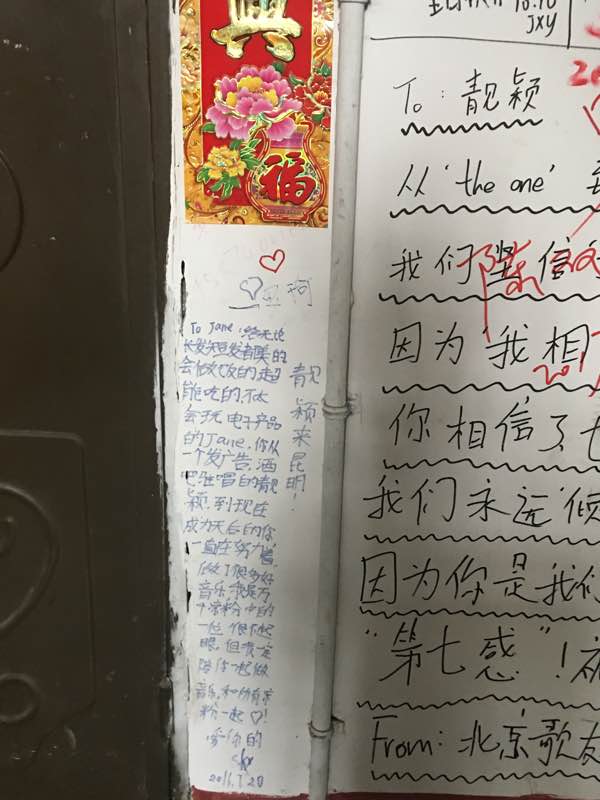 興
福
To Jane:
长发短发都美的
会做饭的,超
能吃的,不太
会玩电子产品
的Jane,你从
一个发广告,酒
吧驻唱的靓
颖,到现在
成为天后的你
一直在努力着,
做了很多好
音乐,我是万
千凉粉中的
一位,很不起
眼,但我一定
陪你一起做
音乐,和所有凉
粉一起♡!
爱你的
2016.7.20
靓颖来昆明!
10.10
JXY
To: 靓颖
从'the one'
我们坚信
因为'我相
你相信了
我们永远'倾
因为你是我们
"第七感"!
From: 北京歌友